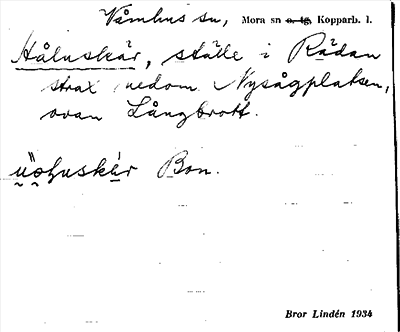 Våmhus sn, Mora sn o. tg, Kopparb. l.
Håluskär, ställe i Rädan
strax nedom Nysågplatsen,
ovan Långbrott.
Bon.
Bror Lindén 1934